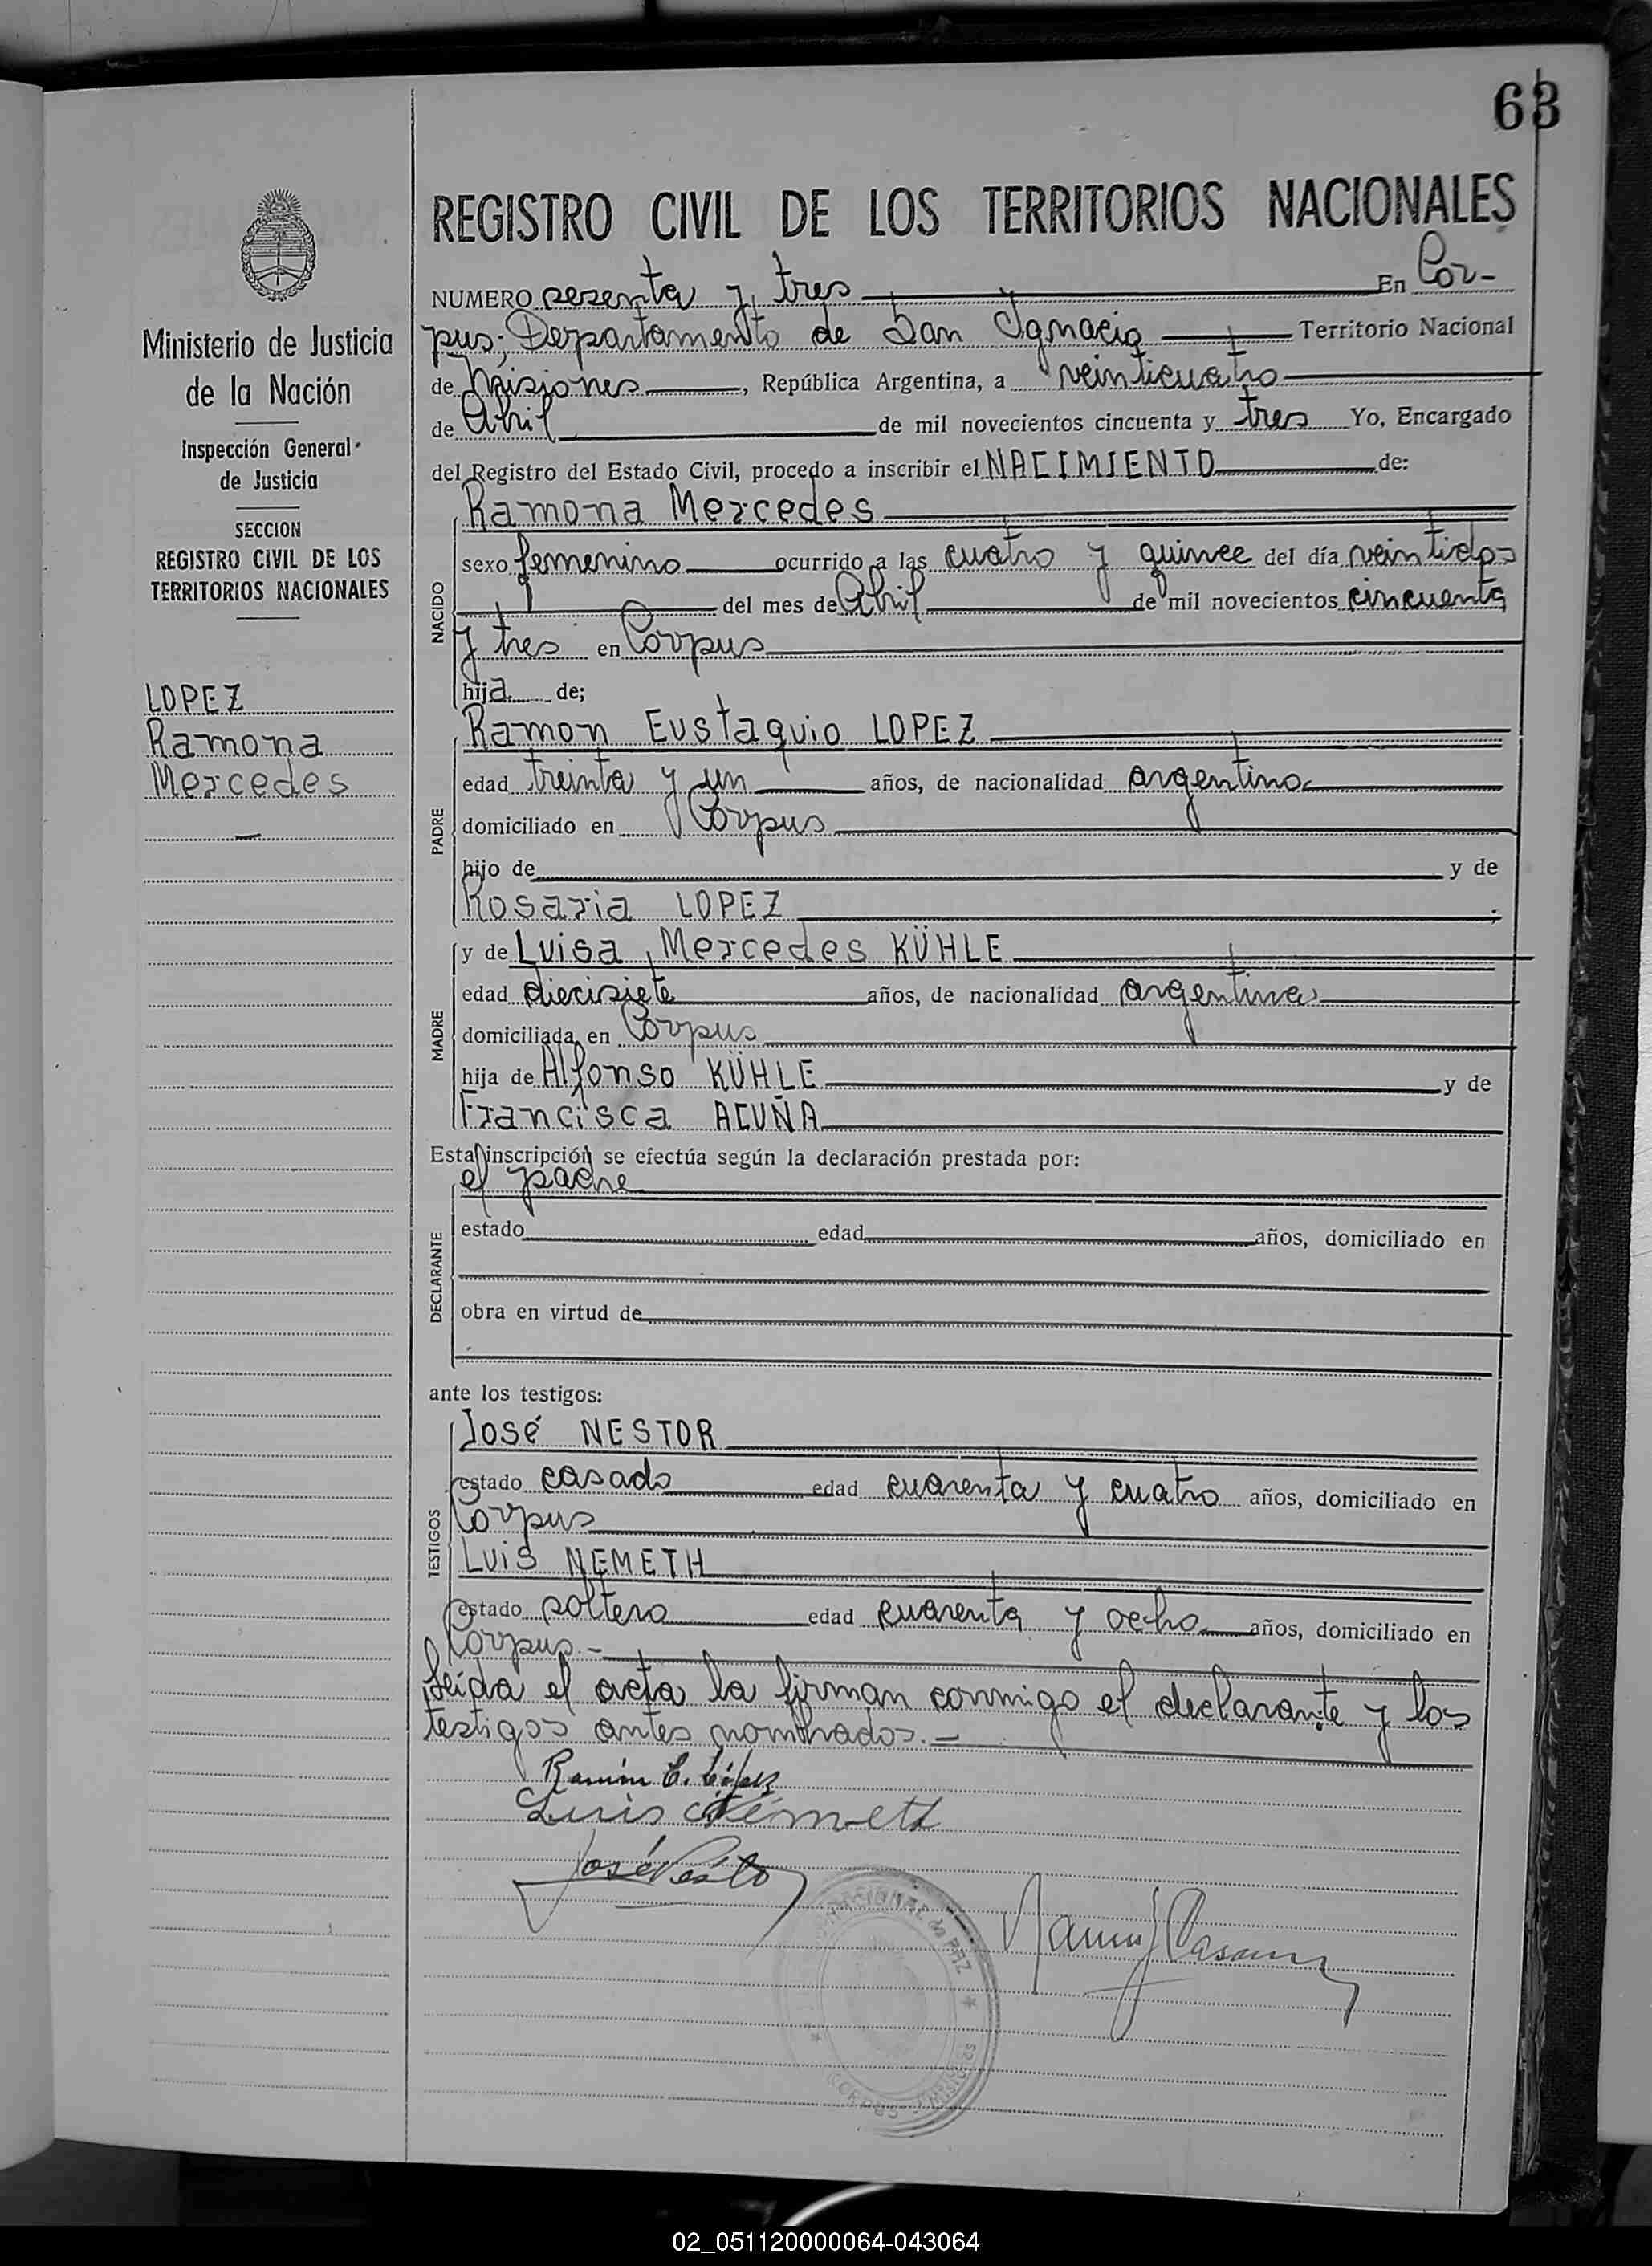 63
REGISTRO CIVIL DE LOS TERRITORIOS NACIONALES
Ministerio de Justicia
de la Nación
Inspección General
de Justicia
SECCION
REGISTRO CIVIL DE LOS
TERRITORIOS NACIONALES
LOPEZ
Ramona
Mercedes
NUMERO sesenta y tres En Cor-
pus; Departamento de San Ygnacio Territorio Nacional
de Misiones, República Argentina, a veinticuatro
de Abril de mil novecientos cincuenta y tres Yo, Encargado
del Registro del Estado Civil, procedo a inscribir el NACIMIENTO de:
NACIDO
Ramona Mercedes
sexo femenino ocurrido a las cuatro y quince del día veintidos
del mes de Abril de mil novecientos cincuenta
y tres en Corpus
hija de;
PADRE
Ramon Eustaquio LOPEZ
edad treinta y un años, de nacionalidad argentino
domiciliado en Corpus
hijo de y de
Rosaria LOPEZ ;
MADRE
y de Luisa Mercedes KÜHLE
edad diecisiete años, de nacionalidad argentina
domiciliada en Corpus
hija de Alfonso KÜHLE y de
Francisca ACUÑA
Esta inscripción se efectúa según la declaración prestada por:
DECLARANTE
el padre
estado edad años, domiciliado en
obra en virtud de
ante los testigos:
TESTIGOS
José NESTOR
estado casado edad cuarenta y cuatro años, domiciliado en
Corpus
Luis NEMETH
estado soltero edad cuarenta y ocho años, domiciliado en
Corpus.-
Leída el acta la firman conmigo el declarante y los
testigos antes nombrados.-
Ramón E. López
Luis Németh
José
NACIONAL de PAZ
CORPUS MISIONES
02_051120000064-043064